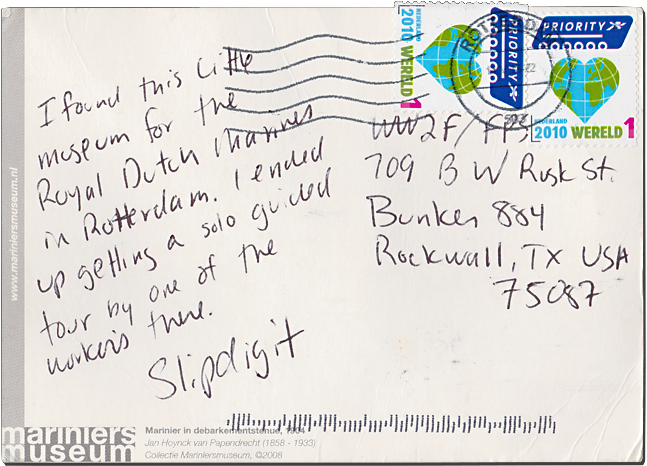 I found this little
museum for the
Royal Dutch Marines
in Rotterdam. I ended
up getting a solo guided
tour by one of the
workers there.
Slipdigit
NEDERLAND
2010 WERELD
1
PRIORITY
PRIORITY
NEDERLAND
2010 WERELD 1
WW2F/FPS
709 B W Rusk St.
Bunker 884
Rockwall, TX USA
75087
www.mariniersmuseum.nl
mariniers
museum
Marinier in debarkementstenue, 1904
Jan Hoynck van Papendrecht (1858 - 1933)
Collectie Mariniersmuseum, ©2008